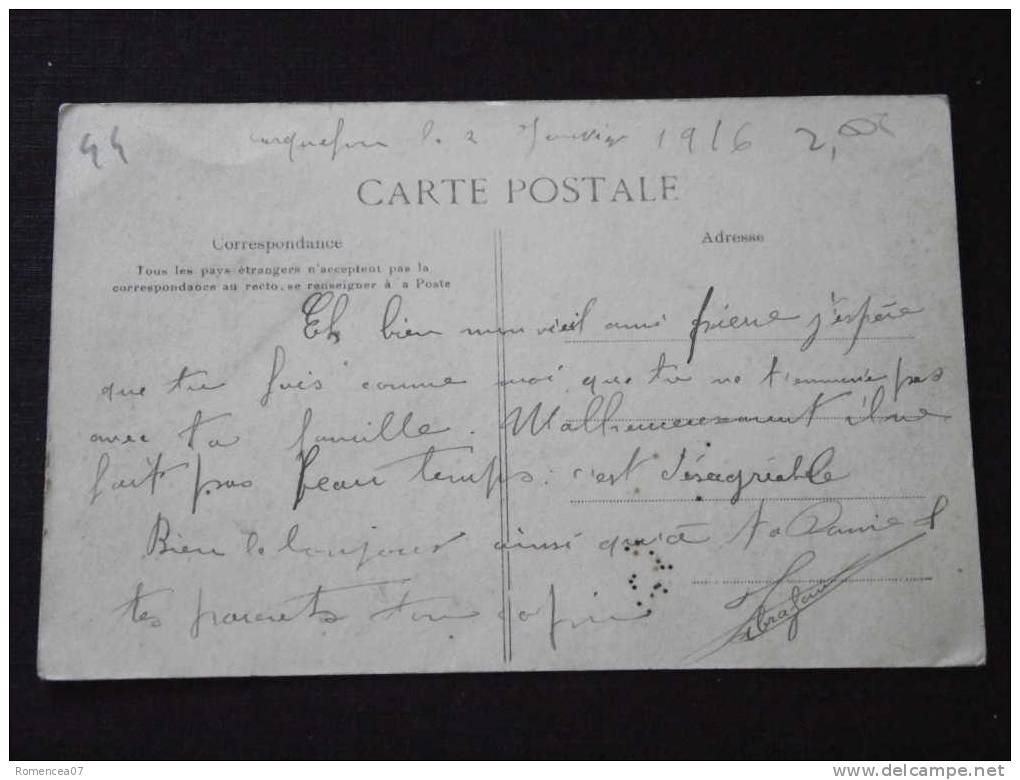 44 le 2 Janvier 1916 2,00
CARTE POSTALE
Correspondance
Adresse
Tous les pays étrangers n'acceptent pas la
correspondance au recto, se renseigner à a Poste
Eh bien mon vieil ami Pierre j'espère
que tu fais comme moi que tu ne t'ennuie pas
avec ta famille. Malheureusement il ne
fait pas beau temps. c'est désagréable
Bien le bonjour ainsi qu'à ta Dame &
tes parents ton copin
Romencea07
delcampe.net